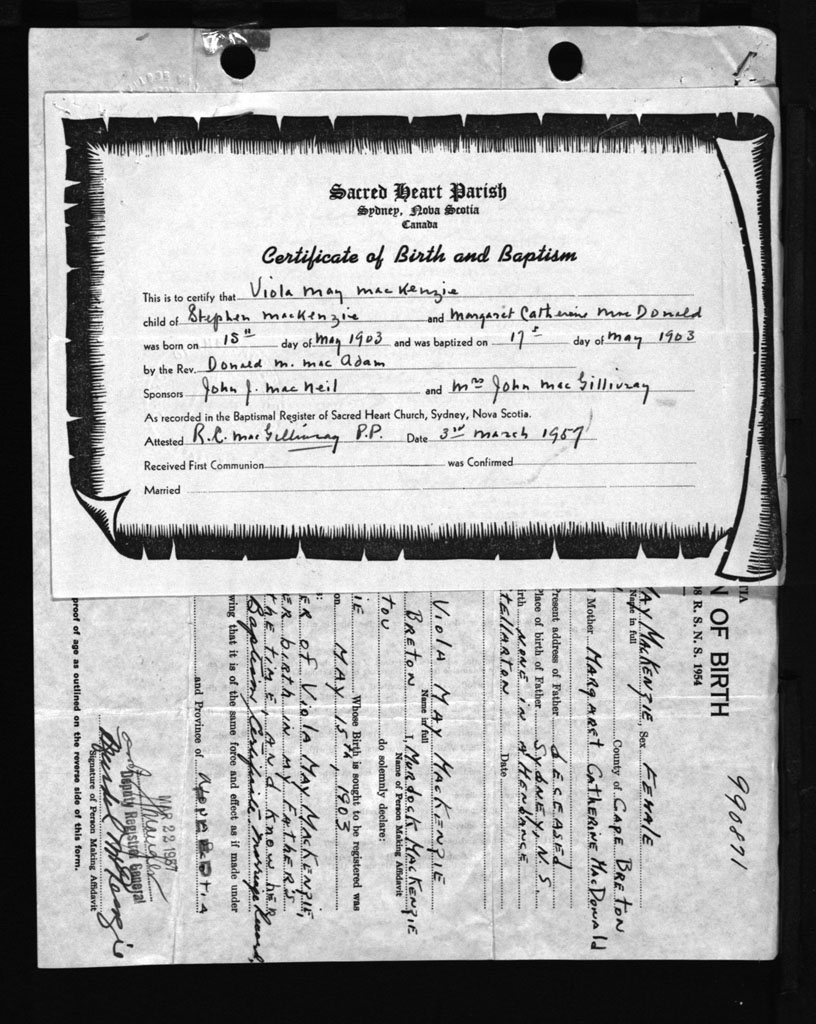 Sacred Heart Parish
Sydney, Nova Scotia
Canada
Certificate of Birth and Baptism
This is to certify that Viola May MacKenzie
child of Stephen MacKenzie and Margaret Catherine MacDonald
was born on 15th day of May 1903 and was baptized on 17th day of May 1903
by the Rev. Donald M. MacAdam
Sponsors John J. MacNeil and Mrs John MacGillivray
As recorded in the Baptismal Register of Sacred Heart Church, Sydney, Nova Scotia.
Attested R.C. MacGillivray P.P. Date 3rd March 1957
Received First Communion was Confirmed
Married
990891
TIA
N OF BIRTH
08 R. S. N. S. 1954
AY MacKENZIE, Sex FEMALE
Name in full
County of CAPE BRETON
Mother MARGARET CATHERINE MacDONALD
resent address of Father DECEASED
lace of birth of Father SYDNEY, N.S.
rth NONE IN ATTENDANCE
TELLARTON Date
VIOLA MAY MacKENZIE
Name in full
BRETON I, MURDOCK MacKENZIE
Name of Person Making Affidavit
TOU do solemnly declare:
IE Whose Birth is sought to be registered was
on MAY 15th, 1903
ER OF VIOLA MAY MacKENZIE,
ER BIRTH IN MY FATHER'S
THE TIME, AND KNOW HER
Baptism Certificate. Marriage Record,
wing that it is of the same force and effect as if made under
and Province of
MAR 22 1957
Deputy Registrar General
Signature of Person Making Affidavit
proof of age as outlined on the reverse side of this form.